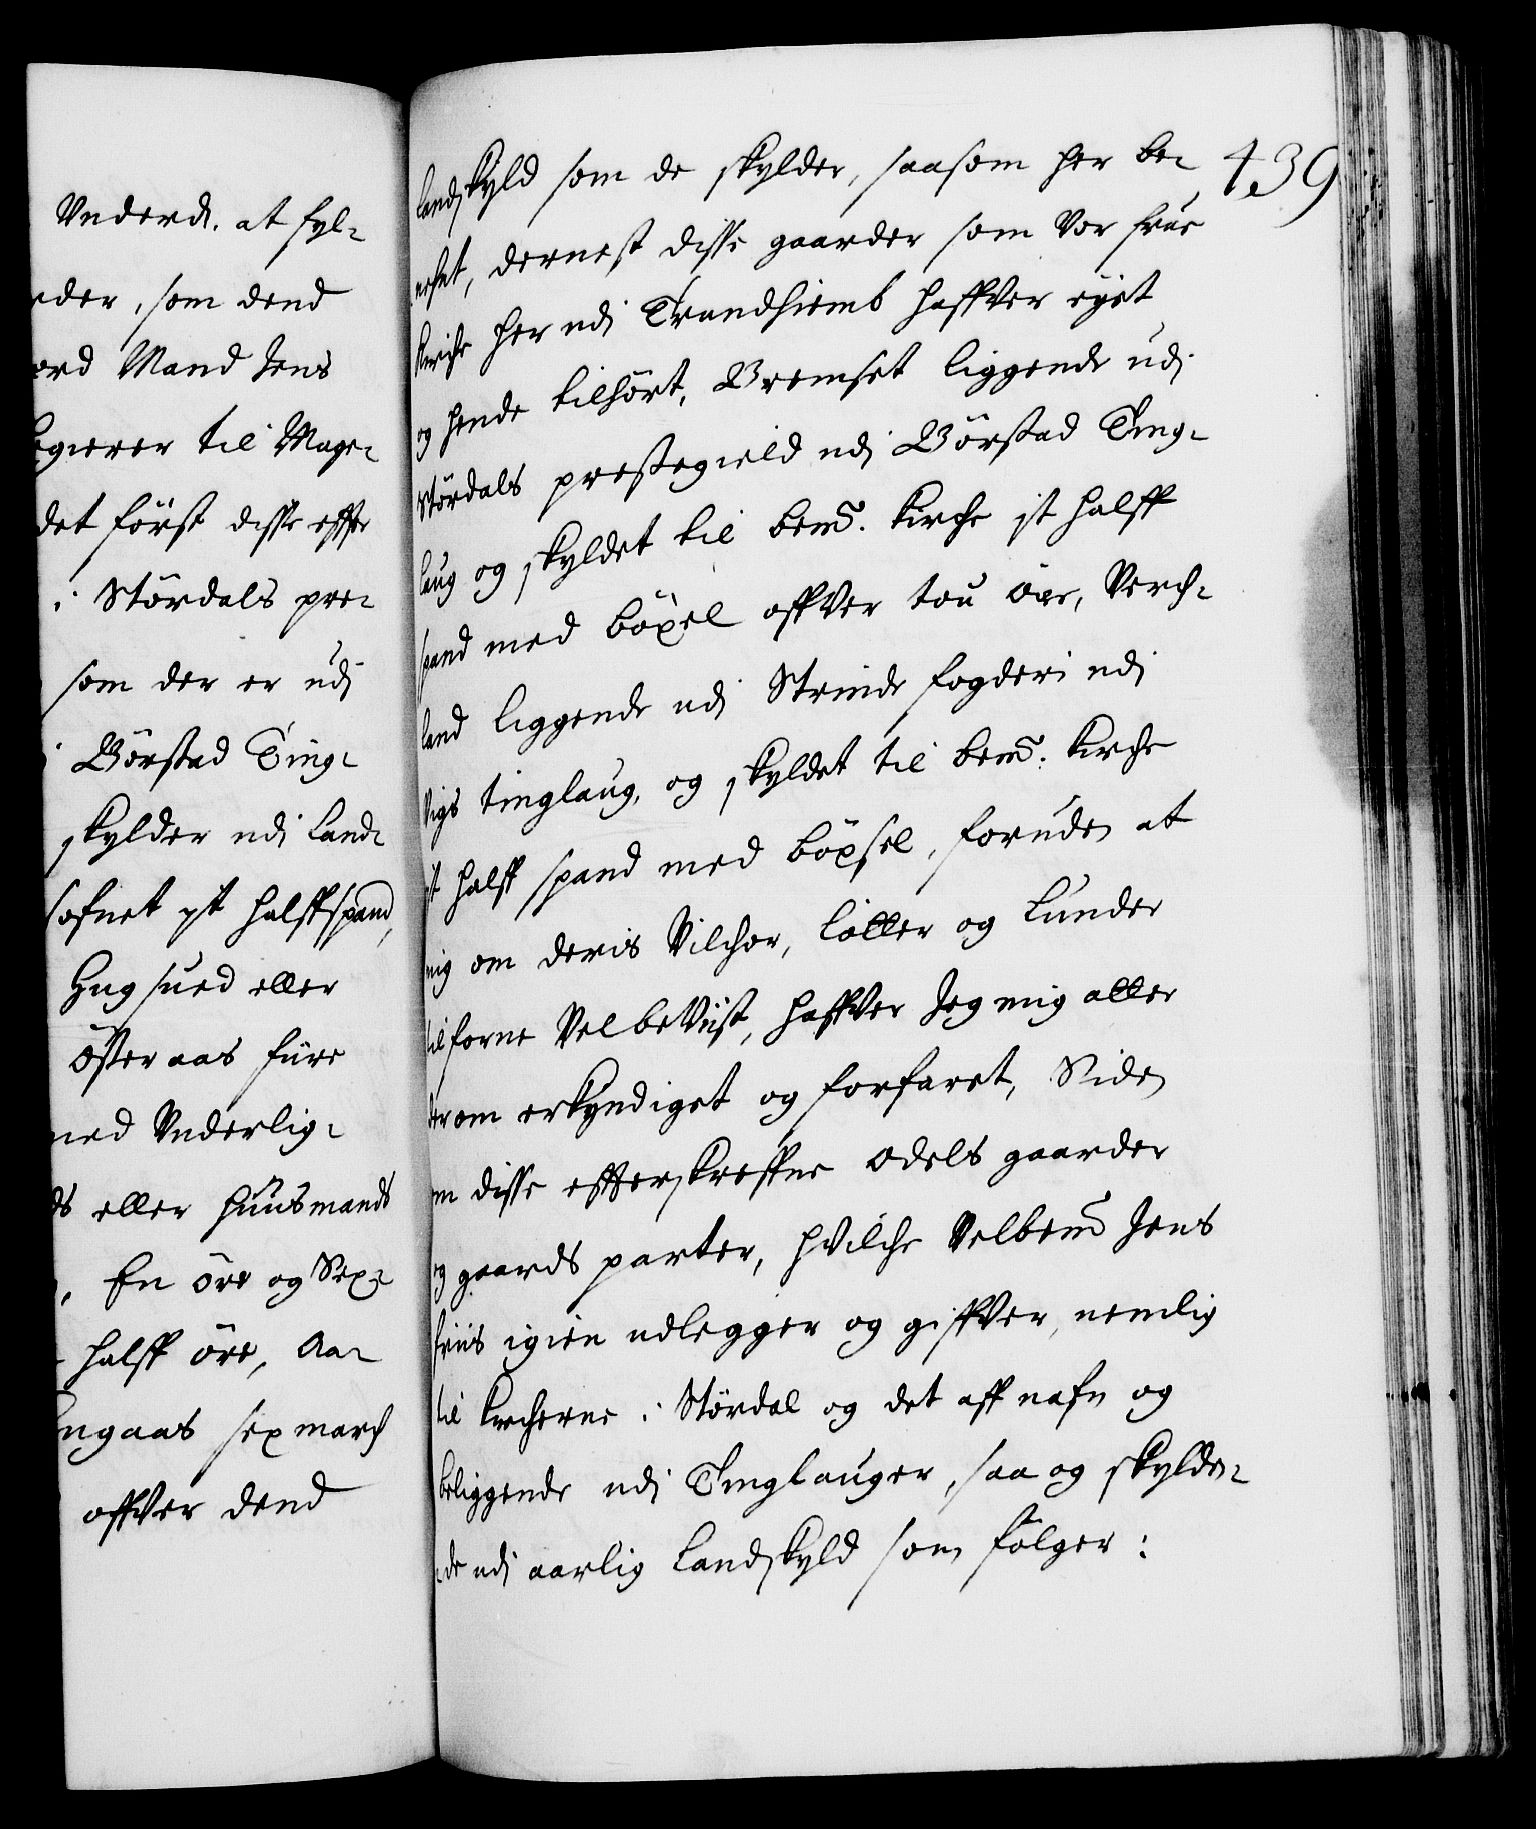 Underd. at fyl-
rder, som dend
Mand Jens
gierer til Mage-
det först disse effter
i Stördals pre-
som der er udj
i Börstad Ting-
skylder udj Land-
ofnet it halffspand,
Hugsued eller
Österaas fiire
med Underlig-
ds eller Huusmands
, En öre og Sex-
halff öre, Aa-
ngaas sex march
offver dend
439
Landskyld som de skylder, saasom her be-
nefnt, dernest disse gaarder som Vor frue
Kirche her udj Trundhiemb haffver eyet
og hende tilhört, Bremset liggende udj
Stördals prestegield udj Börstad Ting-
laug og skyldet til bemd. Kirche it halff
spand med böxel offver tou öre, Verch-
land liggende udj Strinde fogderi udj
Vigs tinglaug, og skyldet til bemd. Kirche
it halff spand med böxsel, foruden at
mig om deris Vilchor, Lötter og Lunder
tilforne Velbeviist, haffver Jeg mig aller
derom erkyndiget og forfaret, Siden
om disse effterskreffne odels gaarder
og gaards parter, hvilche Velbemd Jens
friis igien udlegger og giffver, nemlig
til Kircherne i Stördal og det aff nafn og
beliggende udj Tinglauger, saa og skylden-
de udj aarlig Landskyld som fölger: